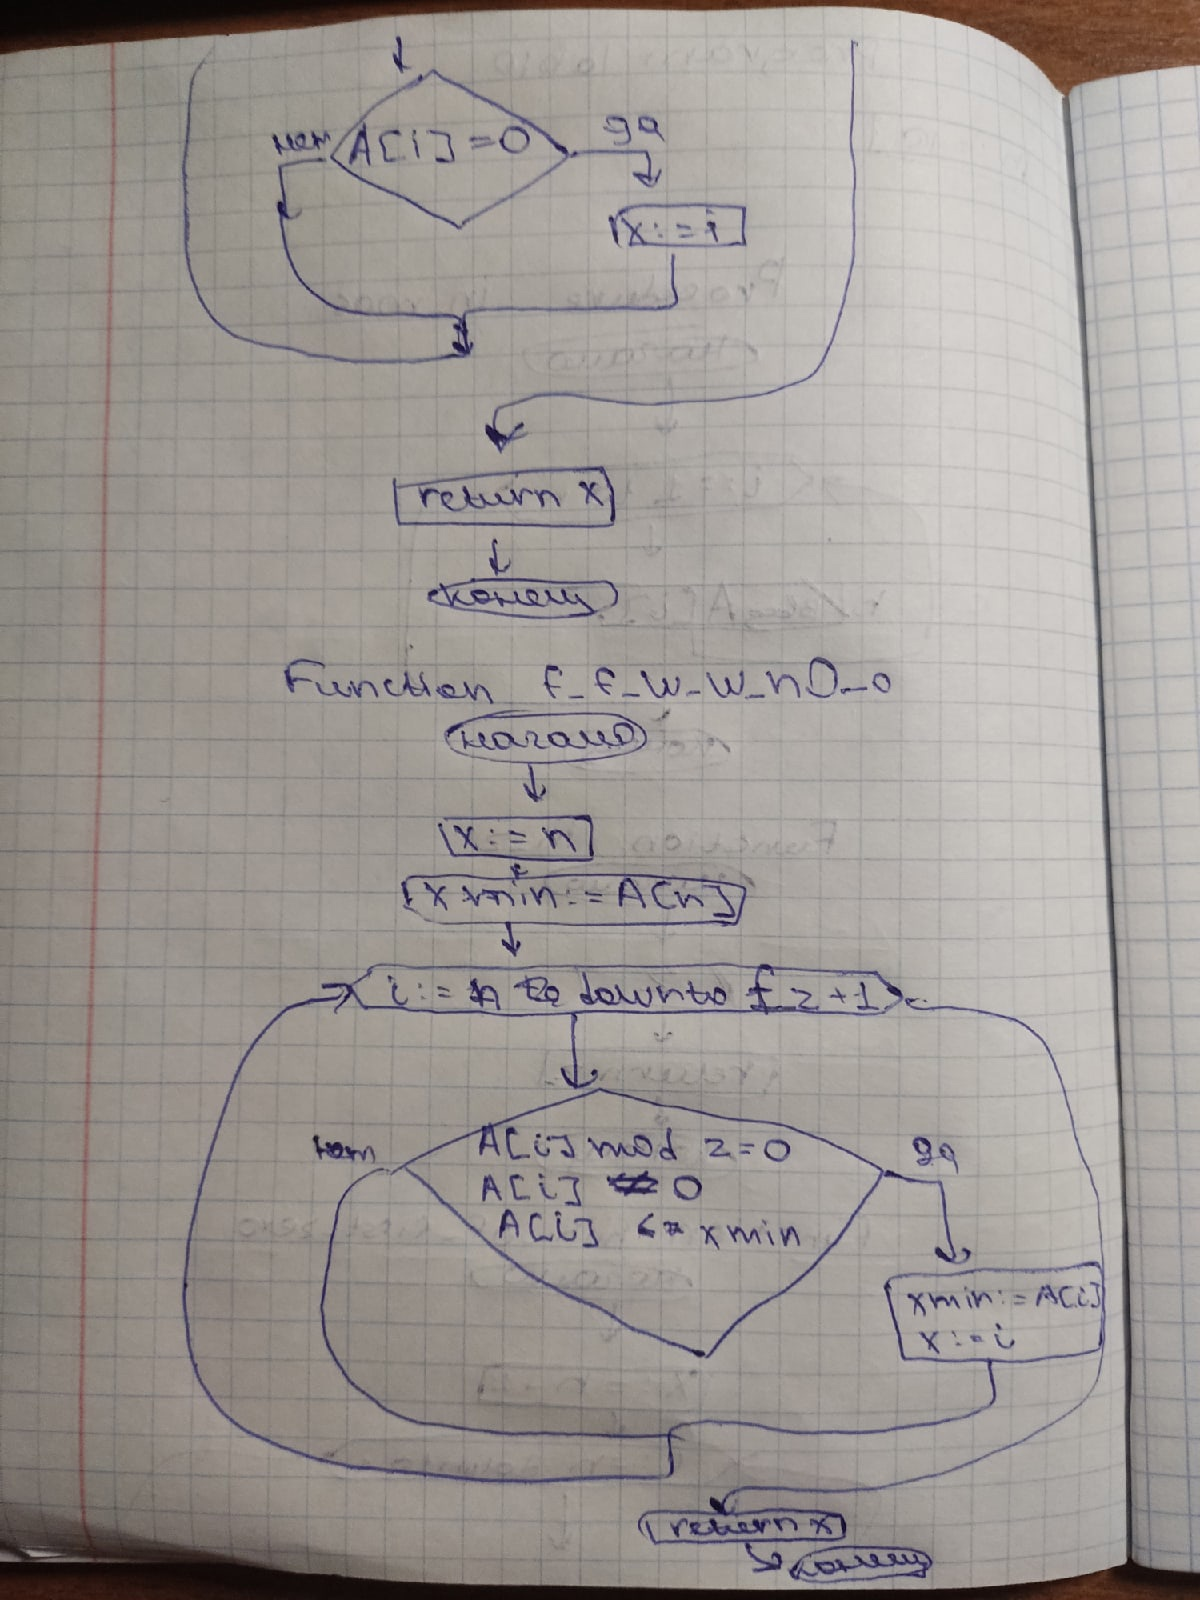 нет A[i]=0 да
x:=i
return x
конец
Function f_f_w_w_n0_0
начало
x:=n
xmin:=A[n]
i:=n downto f_z+1
нет A[i] mod 2=0 да
A[i] 0
A[i] <= xmin
xmin:=A[i]
x:=i
return x
конец